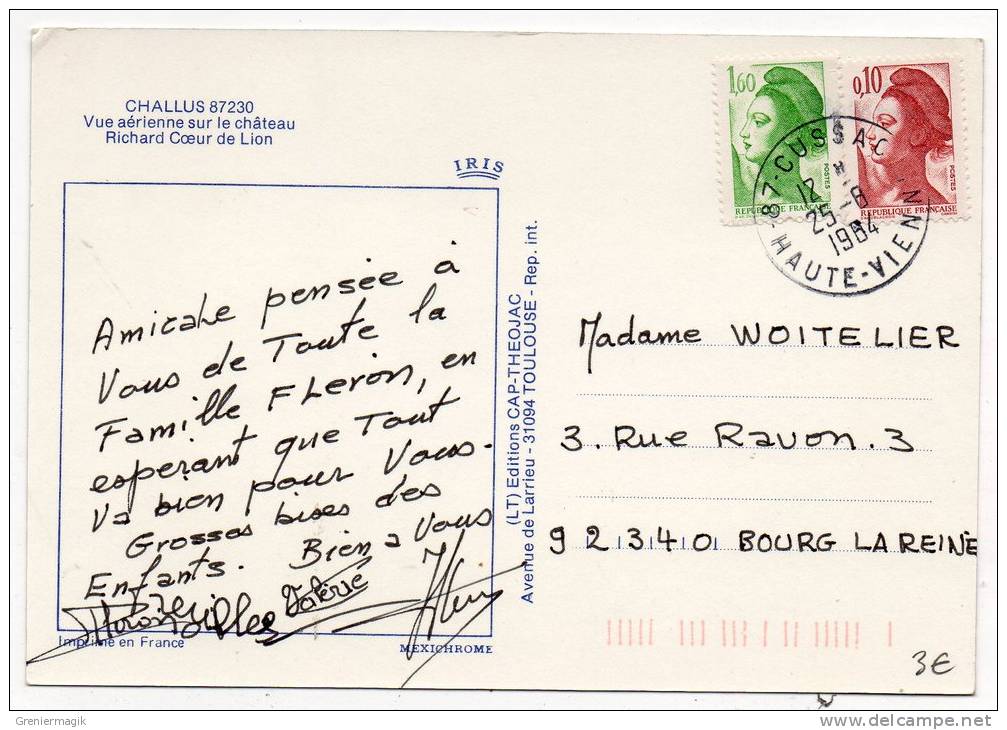 CHALLUS 87230
Vue aérienne sur le château
Richard Cœur de Lion
IRIS
Amicale pensée à
Vous de Toute la
Famille Fleron, en
esperant que Tout
Va bien pour Vous.
Grosses bises des
Enfants. Bien a Vous
Valérie
Gilles
Imprimé en France
MEXICHROME
(LT) Editions CAP-THEOJAC
Avenue de Larrieu - 31094 TOULOUSE - Rep. int.
1,60
POSTES
REPUBLIQUE FRANÇAISE
0,10
POSTES
REPUBLIQUE FRANÇAISE
87-CUSSAC
12 H
25-6
1984
HAUTE-VIENN
Madame WOITELIER
3. Rue Ravon. 3
92340 BOURG LA REINE
3€
Greniermagik
www.delcampe.net